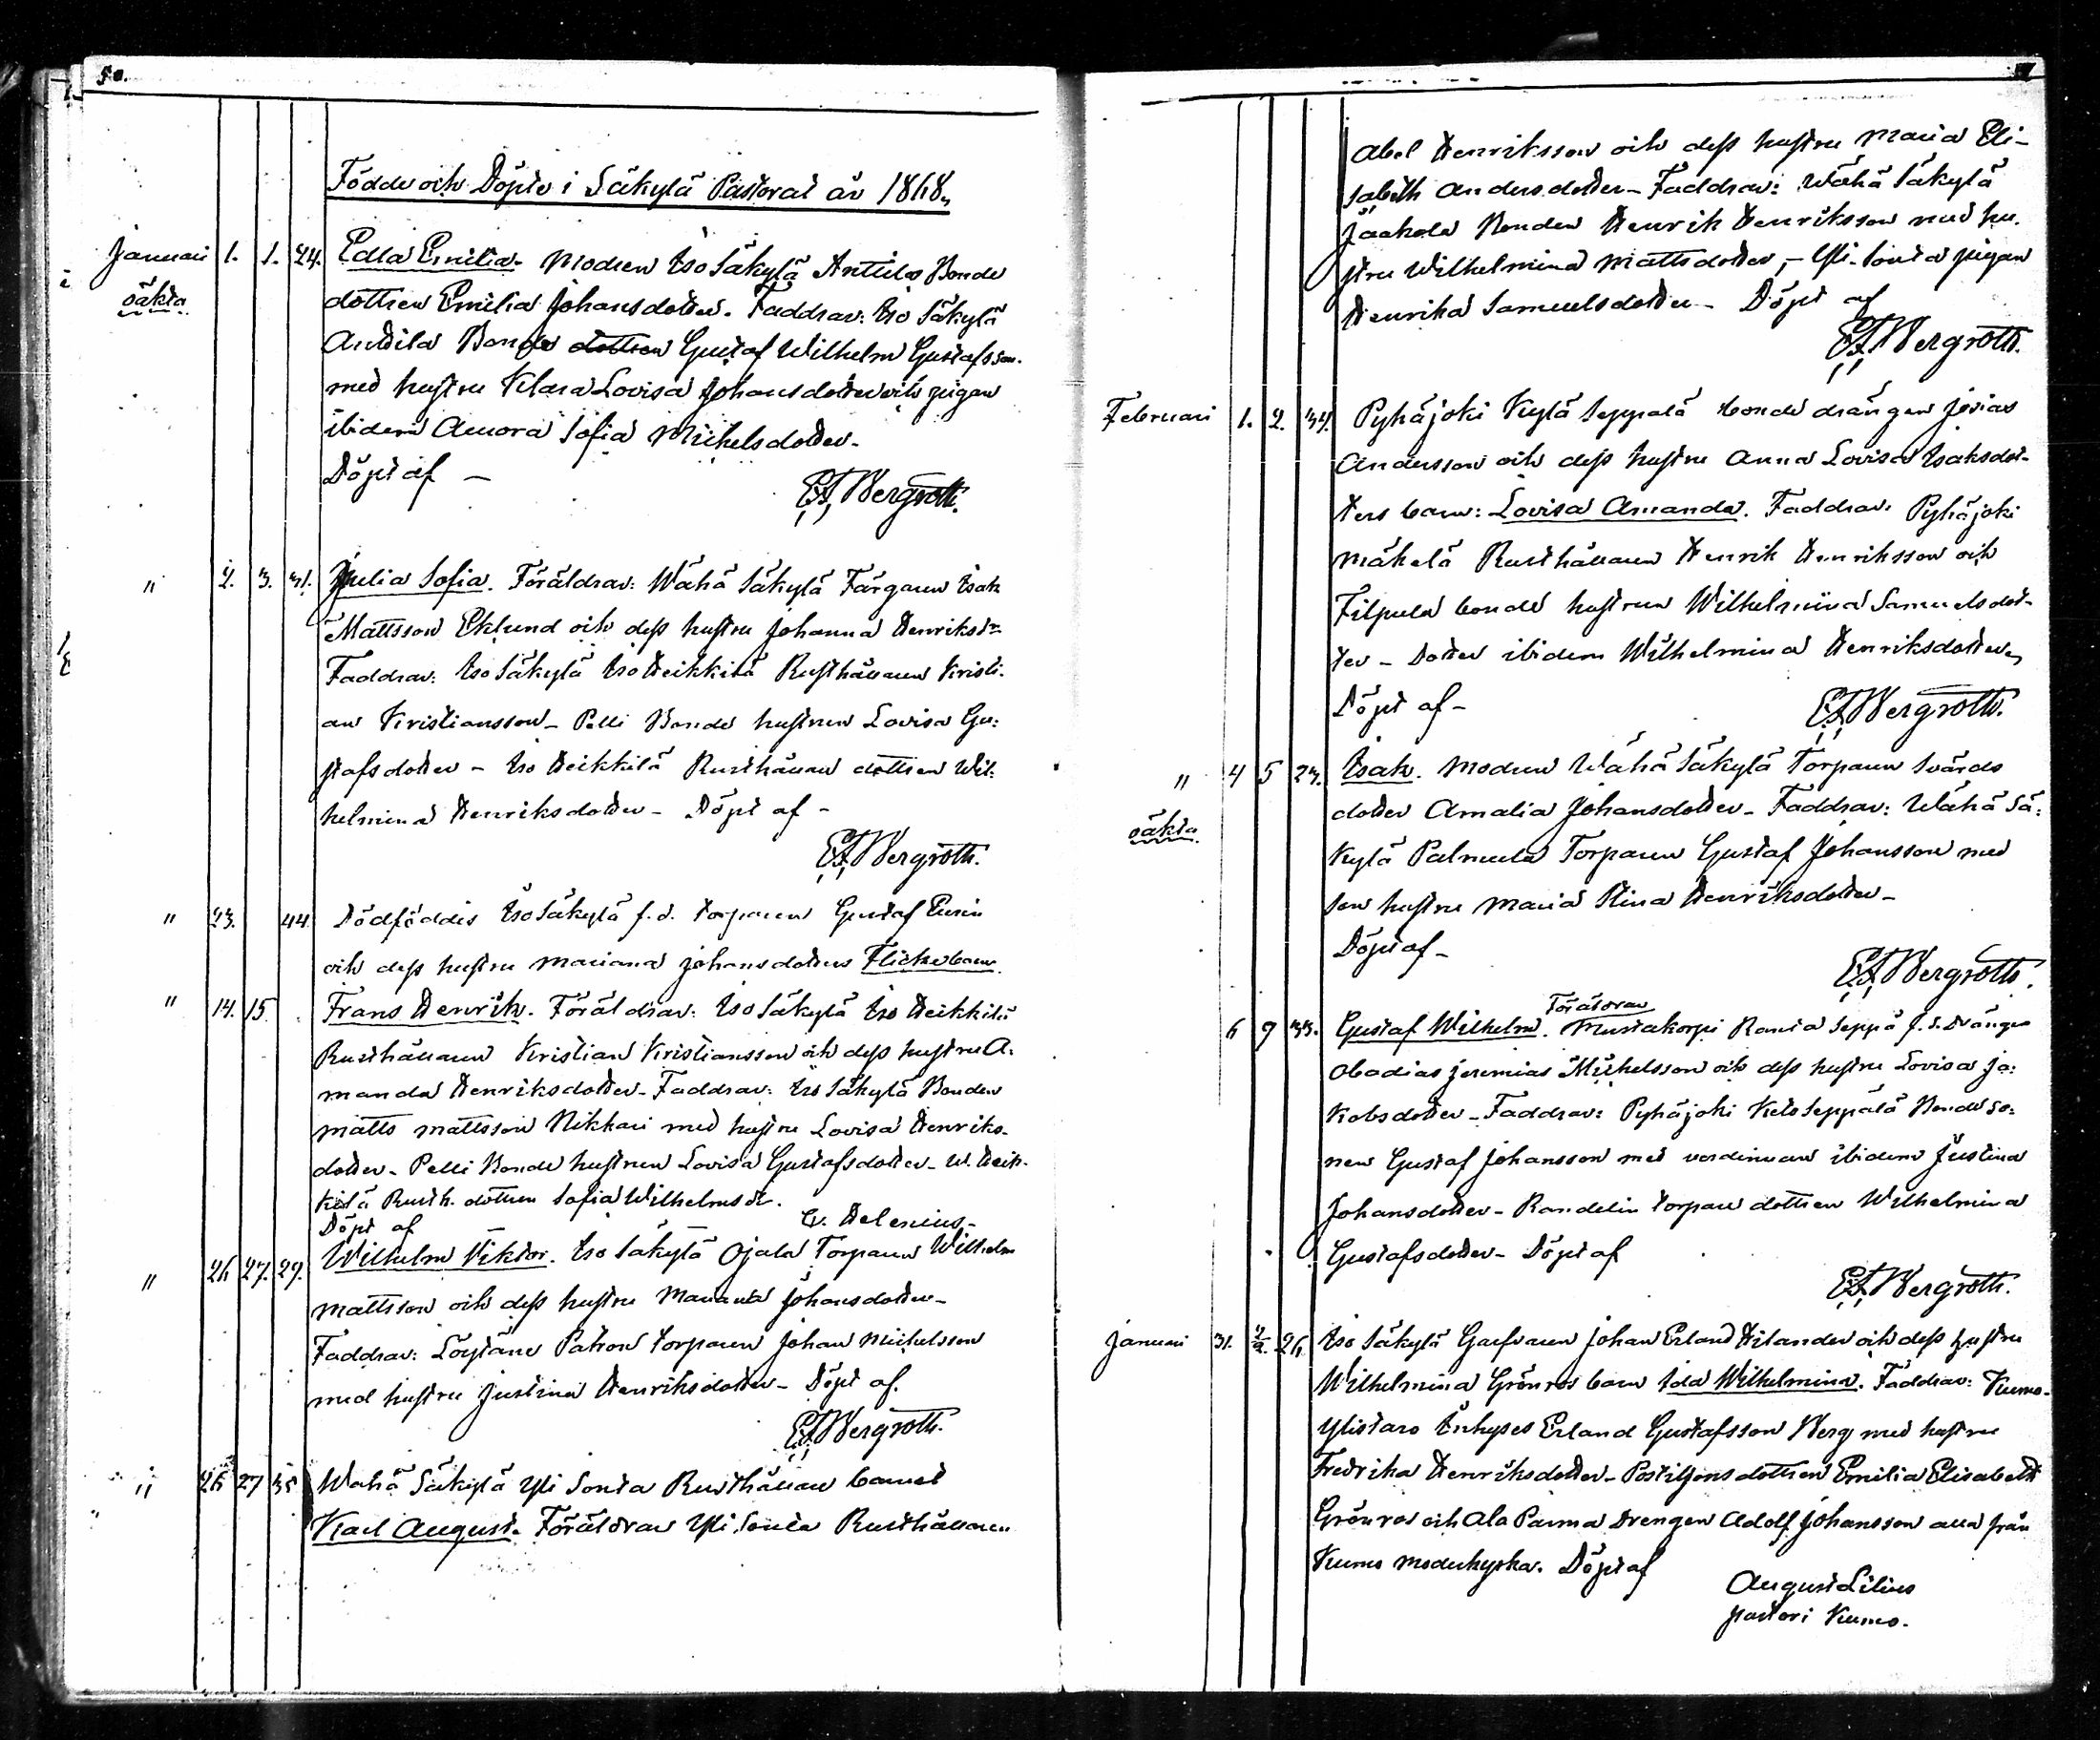 50.
Födde och Döpte i Säkylä Pastorat år 1868.
Januari 1. 1. 24. Edla Emilia. Modren Iso Säkylä Anttila Bonde
oäkta dottren Emilia Johansdotter. Faddrar: Iso Säkylä
Anttila Bonde dottren Gustaf Wilhelm Gustafsson
med hustru Klara Lovisa Johansdotter och pigan
ibidem Amora Sofia Michelsdotter.
Döpt af —
E. F. Bergroth.
" 2. 3. 31. Julia Sofia. Föräldrar: Wähä Säkylä Färgaren Isak
Mattsson Eklund och dess hustru Johanna Henriksdr
Faddrar: Iso Säkylä Iso Heikkilä Rusthållaren Kristi-
an Kristiansson – Pelli Bonde hustrun Lovisa Gu-
stafsdotter – Iso Heikkilä Rusthållare dottren Wil-
helmina Henriksdotter – Döpt af –
E. F. Bergroth.
" 23. 44 Dödföddis Iso Säkylä f.d. torparen Gustaf
och dess hustru Mariana Johansdotters Flickebarn.
" 14. 15. Frans Henrik. Föräldrar: Iso Säkylä Iso Heikkilä
Rusthållaren Kristian Kristiansson och dess hustru A-
manda Henriksdotter – Faddrar: Iso Säkylä Bonden
Matts Mattsson Nikkari med hustru Lovisa Henriks-
dotter – Pelli Bonde hustrun Lovisa Gustafsdotter – W. Heik-
kilä Rusth. dottren Sofia Wilhelmsdr.
Döpt af G. Helenius.
" 26 27. 29. Wilhelm Viktor. Iso Säkylä Ojala Torparen Wilhelm
Mattsson och dess hustru Mariana Johansdotter –
Faddrar: Löytäne Patron torparen Johan Michelsson
med hustru Justina Henriksdotter – Döpt af.
E. F. Bergroth.
" 26 27 35 Wähä Säkylä Yli Sonta Rusthållare barnet
Karl August. Föräldrar Yli Sonta Rusthållaren
Abel Henriksson och dess hustru Maria Eli-
sabeth Andersdotter – Faddrar: Wähä Säkylä
Jaakola Bonden Henrik Henriksson med hu-
stru Wilhelmina Mattsdotter, – Yli-Sonta pigan
Henrika Samuelsdotter – Döpt af
E. F. Bergroth.
Februari 1. 2. 34. Pyhäjoki Kylä Seppälä bonde drängen Josias
Andersson och dess hustru Anna Lovisa Isaksdot-
ters barn: Lovisa Amanda. Faddrar: Pyhäjoki
Mäkelä Rusthållaren Henrik Henriksson och
Filpula bonde hustrun Wilhelmina Samuelsdot-
ter – Dotter ibidem Wilhelmina Henriksdotter,
Döpt af –
E. F. Bergroth.
" 4 5 23. Isak. Modren Wähä Säkylä Torparen Svärds
dotter Amalia Johansdotter – Faddrar: Wähä Sä-
oäkta kylä Palmula Torparen Gustaf Johansson med
sin hustru Maria Stina Henriksdotter –
Döpt af –
E. F. Bergroth.
Föräldrar
6 9 33. Gustaf Wilhelm. Mustakorpi Ranta Seppä f.d. Drängen
Obadias Jeremias Michelsson och dess hustru Lovisa Ja-
kobsdotter – Faddrar: Pyhäjoki Keto Seppälä Bonde so-
nen Gustaf Johansson med värdinnan ibidem Justina
Johansdotter – Randelin torpare dottren Wilhelmina
Gustafsdotter – Döpt af
E. F. Bergroth.
Januari 31. 2/2. 26 Iso Säkylä Garfvaren Johan Erland Hilander och dess hustru
Wilhelmina Grönros barn Ida Wilhelmina. Faddrar: Kumo-
Ylistaro Inhyses Erland Gustafsson Berg med hustru
Fredrika Henriksdotter – Postiljons dottren Emilia Elisabeth
Grönros och Ala Parma Drengen Adolf Johansson alla från
Kumo moderkyrka. Döpt af
August Lilius
pastor i Kumo.